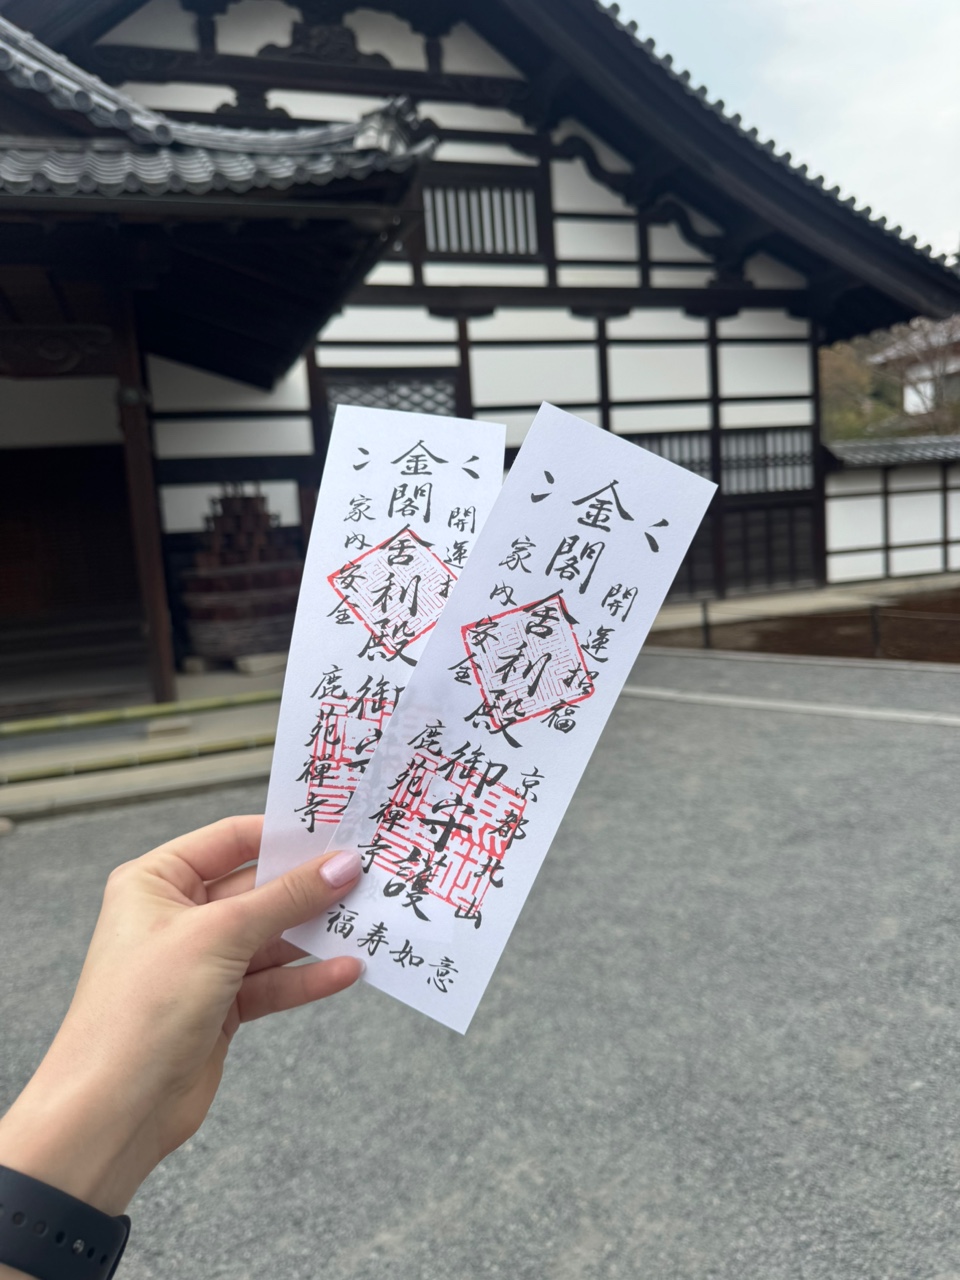 開運
金閣舎利殿
家内安全
御
鹿苑禪寺
開運招福
金閣舎利殿
家内安全
京都北山
御守護
鹿苑禪寺
福寿如意